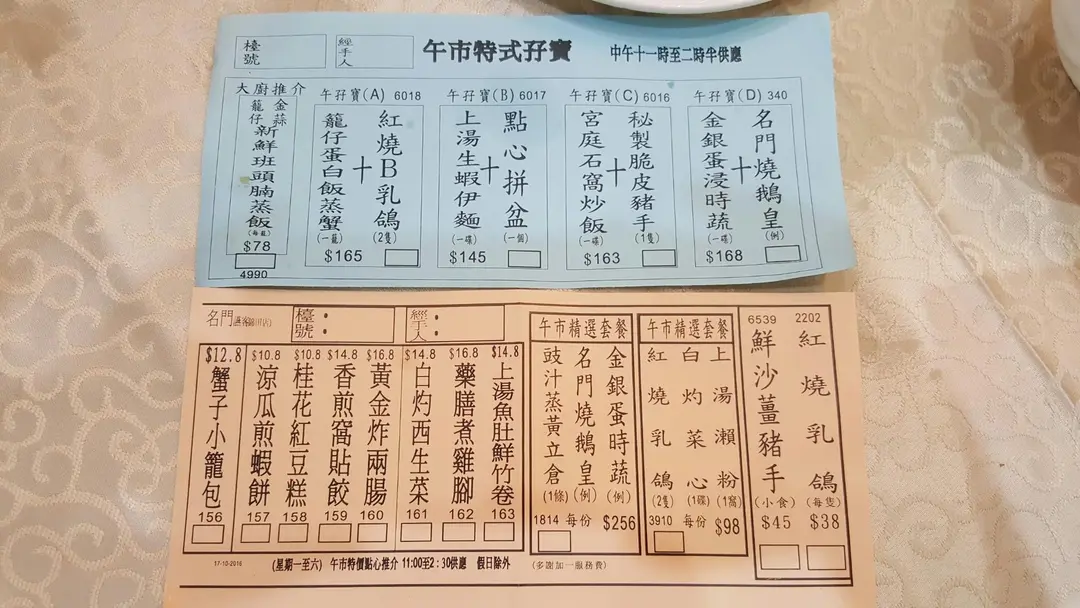 檯號
經手人
午市特式孖寶
中午十一時至二時半供應
大廚推介
金蒜
籠仔
新鮮班頭腩蒸飯
(每籠)
$78
4990
午孖寶(A) 6018
紅燒B乳鴿
(2隻)
+
籠仔蛋白飯蒸蟹
(一籠)
$165
午孖寶(B) 6017
點心拼盆
(一個)
+
上湯生蝦伊麵
(一碟)
$145
午孖寶(C) 6016
秘製脆皮豬手
(1隻)
+
宮庭石窩炒飯
(一碟)
$163
午孖寶(D) 340
名門燒鵝皇
(例)
+
金銀蛋浸時蔬
(一碟)
$168
名門
檯號:
經手人:
$12.8
蟹子小籠包
156
$10.8
涼瓜煎蝦餅
157
$10.8
桂花紅豆糕
158
$14.8
香煎窩貼餃
159
$16.8
黃金炸兩腸
160
$14.8
白灼西生菜
161
$16.8
藥膳煮雞腳
162
$14.8
上湯魚肚鮮竹卷
163
午市精選套餐
金銀蛋時蔬
(例)
名門燒鵝皇
(例)
豉汁蒸黃立倉
(1條)
1814 每份 $256
午市精選套餐
上湯瀨粉
(1窩)
白灼菜心
(1碟)
紅燒乳鴿
(2隻)
3910 每份 $98
6539
鮮沙薑豬手
(小食)
$45
2202
紅燒乳鴿
(每隻)
$38
17-10-2016
(星期一至六) 午市特價點心推介 11:00至2:30供應 假日除外
(多謝加一服務費)